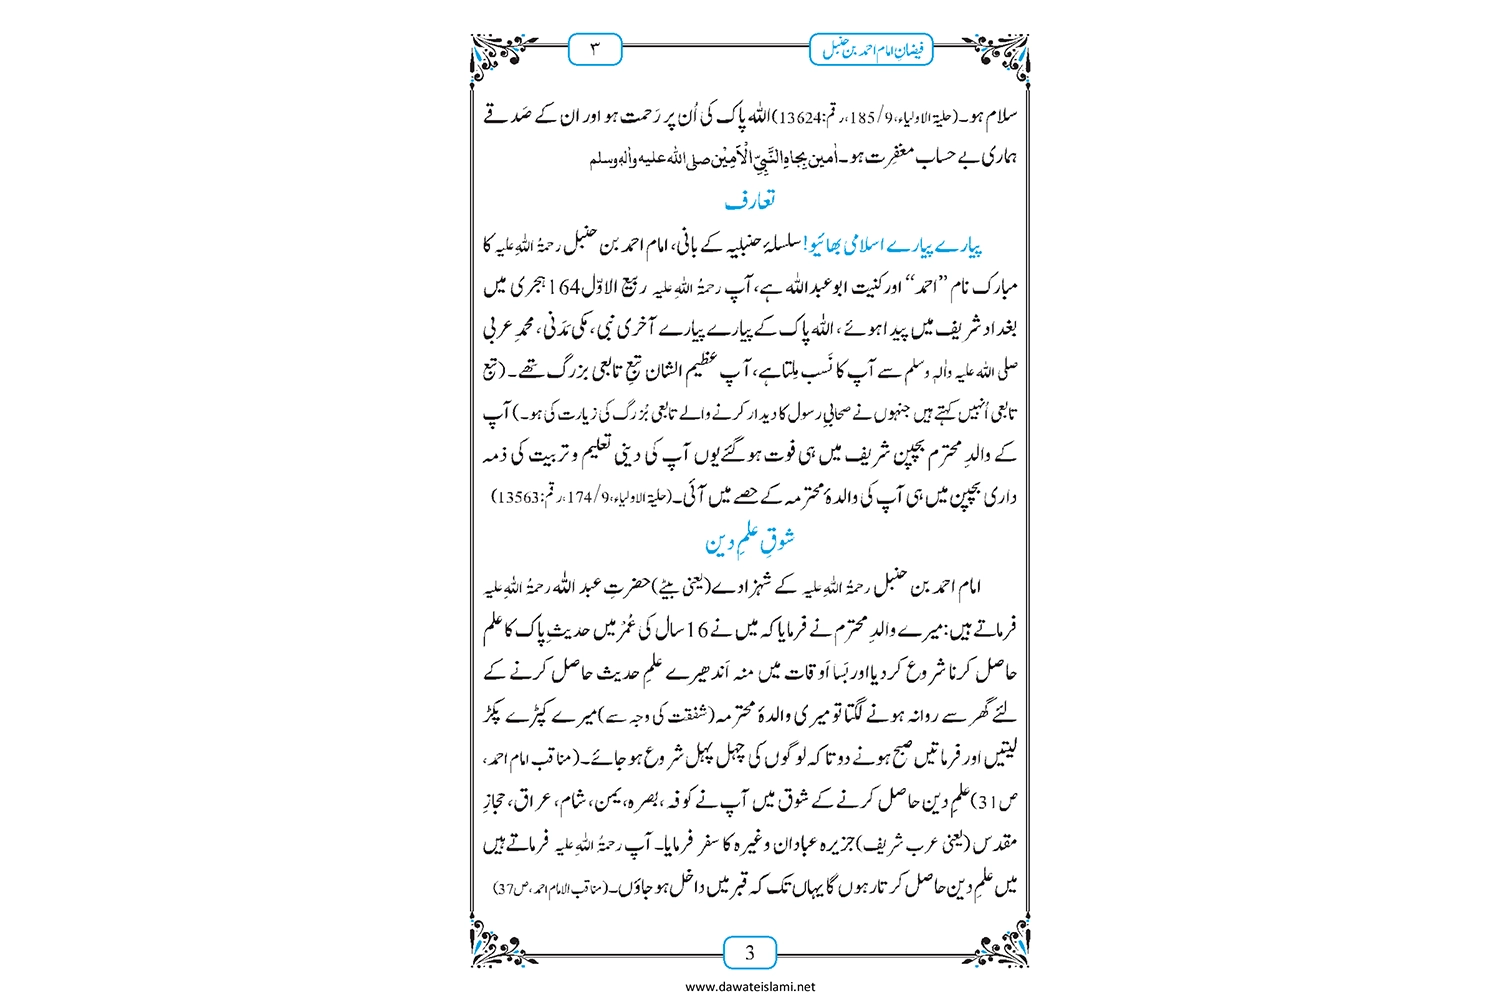 فیضانِ امام احمد بن حنبل
۳
سلام ہو۔(حلیۃ الاولیاء،9/185،رقم:13624)اللہ پاک کی اُن پر رَحمت ہو اور ان کے صَدقے
ہماری بے حساب مغفِرت ہو۔اٰمین بِجاہِ النَّبِیِّ الْاَمِیْن صلی اللہ علیہ واٰلہٖ وسلم
تعارف
پیارے پیارے اسلامی بھائیو! سلسلۂ حنبلیہ کے بانی، امام احمد بن حنبل رحمۃُ اللہِ علیہ کا
مبارک نام ”احمد“ اور کنیت ابو عبد اللہ ہے، آپ رحمۃُ اللہِ علیہ ربیع الاوّل164ہجری میں
بغداد شریف میں پیدا ہوئے ، اللہ پاک کے پیارے پیارے آخری نبی، مکی مَدَنی، محمدِ عربی
صلی اللہ علیہ واٰلہٖ وسلم سے آپ کا نَسَب مِلتا ہے، آپ عَظیم الشان تبعِ تابعی بزرگ تھے۔ (تبعِ
تابعی اُنہیں کہتے ہیں جنہوں نے صَحابیِ رسول کا دیدار کرنے والے تابعی بُزرگ کی زیارت کی ہو۔) آپ
کے والدِ محترم بچپن شریف میں ہی فوت ہوگئے یوں آپ کی دینی تعلیم و تربیت کی ذمہ
داری بچپن میں ہی آپ کی والدۂ محترمہ کے حصے میں آئی۔(حلیۃ الاولیاء،9/174،رقم:13563)
شوقِ علمِ دین
امام احمد بن حنبل رحمۃُ اللہِ علیہ کے شہزادے(یعنی بیٹے)حضرتِ عبد اللہ رحمۃُ اللہِ علیہ
فرماتے ہیں:میرے والدِ محترم نے فرمایا کہ میں نے 16سال کی عُمْر میں حدیثِ پاک کا علم
حاصل کرنا شروع کردیا اور بَسا اَوقات میں منہ اَندھیرے علمِ حدیث حاصل کرنے کے
لئے گھر سے روانہ ہونے لگتا تو میری والدۂ محترمہ(شفقت کی وجہ سے)میرے کپڑے پکڑ
لیتیں اور فرماتیں صبح ہونے دو تاکہ لوگوں کی چہل پہل شروع ہو جائے۔(مناقب امام احمد،
ص31)علمِ دین حاصل کرنے کے شوق میں آپ نے کوفہ ، بصرہ، یمن، شام، عراق، حجازِ
مقدس (یعنی عرب شریف)جزیرہ عبادان وغیرہ کا سفر فرمایا۔ آپ رحمۃُ اللہِ علیہ فرماتے ہیں
میں علمِ دین حاصل کرتا رہوں گا یہاں تک کہ قبر میں داخل ہو جاؤں۔(مناقب الامام احمد، ص37)
3
www.dawateislami.net